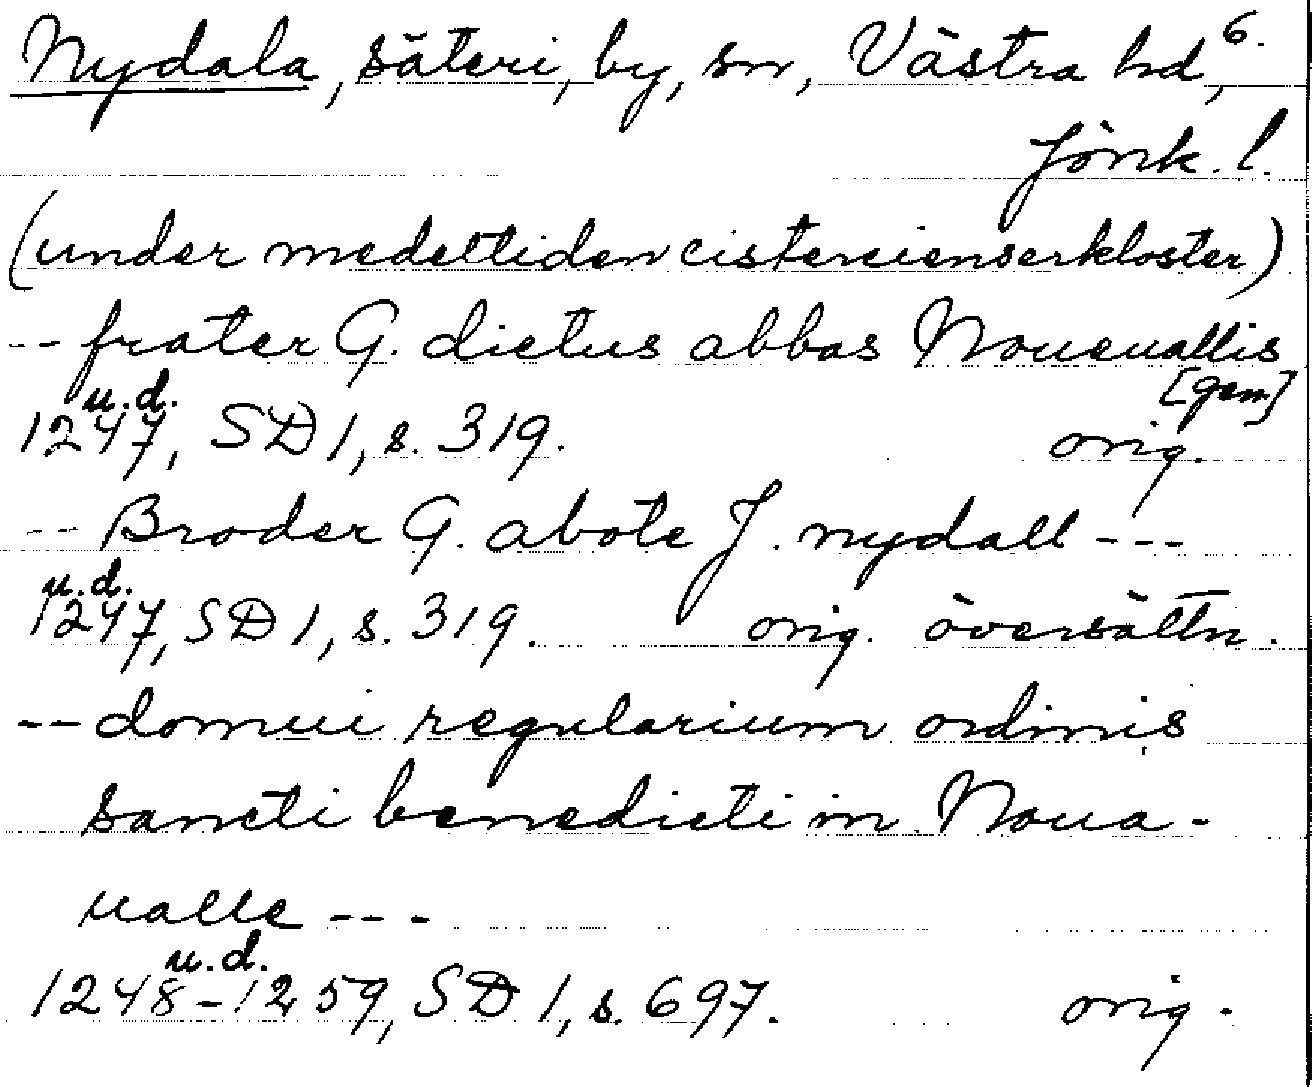 Nydala, säteri, by, sn, Västra hd, 6.
Jönk. l.
(under medeltiden cistercienserkloster)
-- frater G. dictus abbas Noueuallis
[gen]
u.d.
1247, SD 1, s. 319. orig.
-- Broder G. abote J. nydall ---
u.d.
1247, SD 1, s. 319. orig. översättn.
-- domui regularium ordinis
sancti benedicti in Noua-
ualle ---
u.d.
1248-1259, SD 1, s. 697. orig.